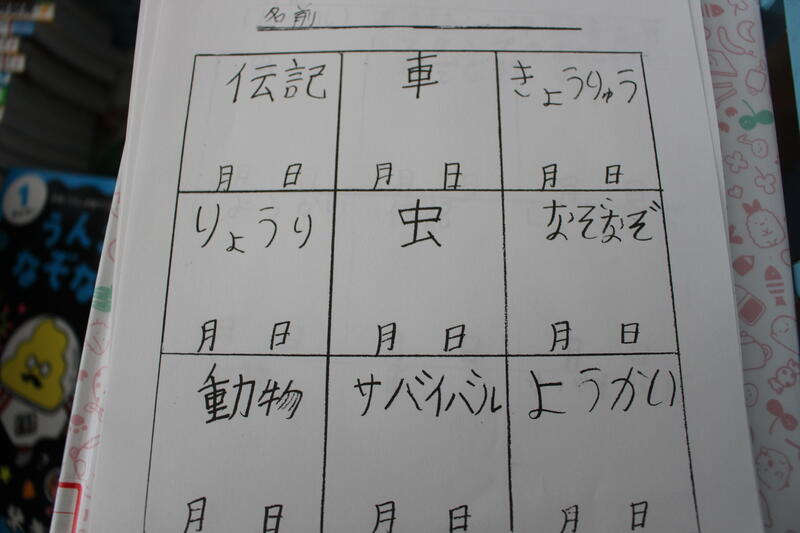 名前
伝記 車 きょうりゅう
月 日 月 日 月 日
りょうり 虫 なぞなぞ
月 日 月 日 月 日
動物 サバイバル ようかい
月 日 月 日 月 日
1
うん
なぞな